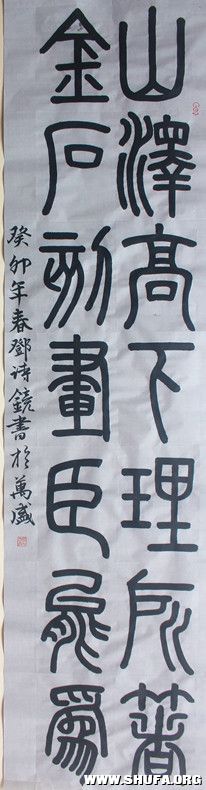 山澤高下理所著
金石刻畫臣能爲
癸卯年春鄧诗鏡書於萬盛
WWW.SHUFA.ORG